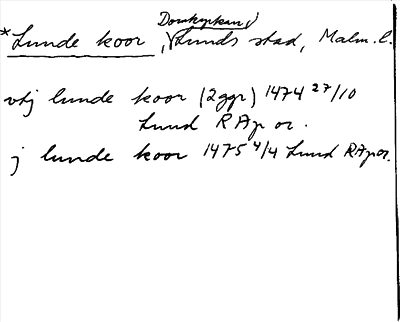 Domkyrkan,
*Lunde koor, Lunds stad, Malm. l.
vtj lunde koor (2ggr) 1474 27/10
Lund RAp or.
j lunde koor 1475 4/4 Lund RAp or.